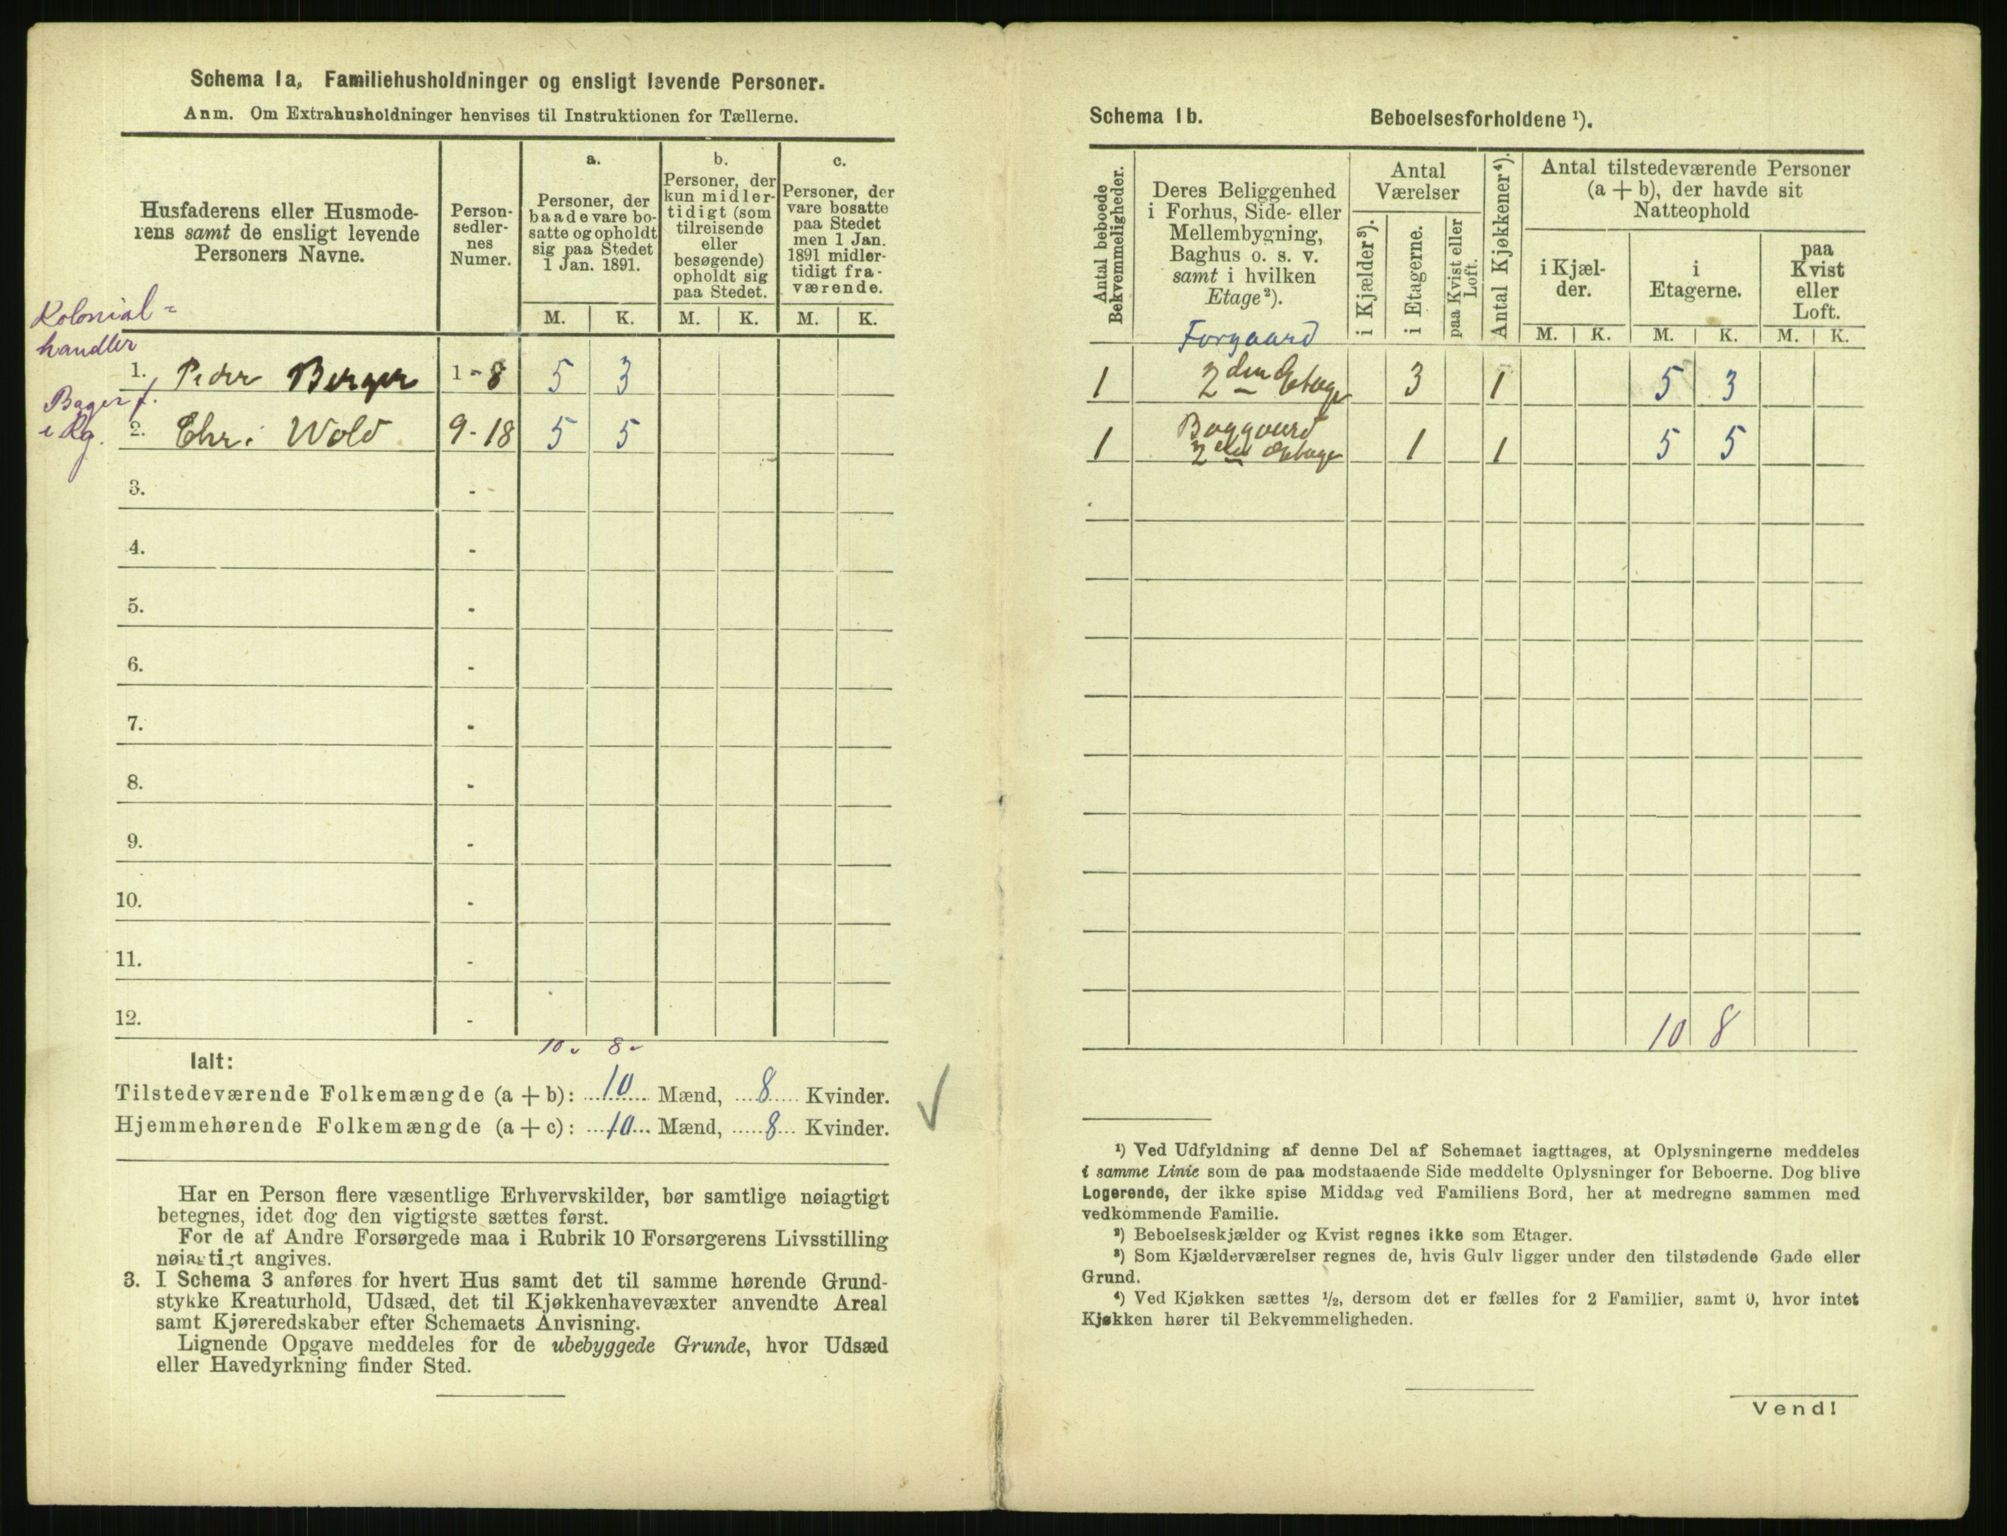 Schema 1a, Familiehusholdninger og ensligt levende Personer.
Anm. Om Extrahusholdninger henvises til Instruktionen for Tællerne.
Husfaderens eller Husmode-
rens samt de ensligt levende
Personers Navne.
Person-
sedler-
nes
Numer.
a.
Personer, der
baade vare bo-
satte og opholdt
sig paa Stedet
1 Jan. 1891.
b.
Personer, der
kun midler-
tidigt (som
tilreisende
eller
besøgende)
opholdt sig
paa Stedet.
c.
Personer, der
vare bosatte
paa Stedet
men 1 Jan.
1891 midler-
tidigt fra-
værende.
M. K. M. K. M. K.
Kolonial-
handler
1. Peder Berger 1-8 5 3
Bager f.
i Kg.
2. Chr. Wold 9-18 5 5
3. -
4. -
5. -
6. -
7. -
8. -
9. -
10. -
11. -
12. -
10 8
Ialt:
Tilstedeværende Folkemængde (a + b): 10 Mænd, 8 Kvinder.
Hjemmehørende Folkemængde (a + c): 10 Mænd, 8 Kvinder.
Har en Person flere væsentlige Erhvervskilder, bør samtlige nøiagtigt
betegnes, idet dog den vigtigste sættes først.
For de af Andre Forsørgede maa i Rubrik 10 Forsørgerens Livsstilling
nøiagtigt angives.
3. I Schema 3 anføres for hvert Hus samt det til samme hørende Grund-
stykke Kreaturhold, Udsæd, det til Kjøkkenhavevæxter anvendte Areal
samt Kjøreredskaber efter Schemaets Anvisning.
Lignende Opgave meddeles for de ubebyggede Grunde, hvor Udsæd
eller Havedyrkning finder Sted.
Schema 1b. Beboelsesforholdene ¹).
Antal beboede
Bekvemmeligheder.
Deres Beliggenhed
i Forhus, Side- eller
Mellembygning,
Baghus o. s. v.
samt i hvilken
Etage²).
Antal
Værelser
i Kjælder³).
i Etagerne.
paa Kvist eller
Loft.
Antal Kjøkkener⁴).
Antal tilstedeværende Personer
(a + b), der havde sit
Natteophold
i Kjæl-
der.
i
Etagerne.
paa
Kvist
eller
Loft.
M. K. M. K. M. K.
Forgaard
1 2den Etage 3 1 5 3
Baggaard
1 2den Etage 1 1 5 5
10 8
¹) Ved Udfyldning af denne Del af Schemaet iagttages, at Oplysningerne meddeles
i samme Linie som de paa modstaaende Side meddelte Oplysninger for Beboerne. Dog blive
Logerende, der ikke spise Middag ved Familiens Bord, her at medregne sammen med
vedkommende Familie.
²) Beboelseskjælder og Kvist regnes ikke som Etager.
³) Som Kjælderværelser regnes de, hvis Gulv ligger under den tilstødende Gade eller
Grund.
⁴) Ved Kjøkken sættes ½, dersom det er fælles for 2 Familier, samt 0, hvor intet
Kjøkken hører til Bekvemmeligheden.
Vend!